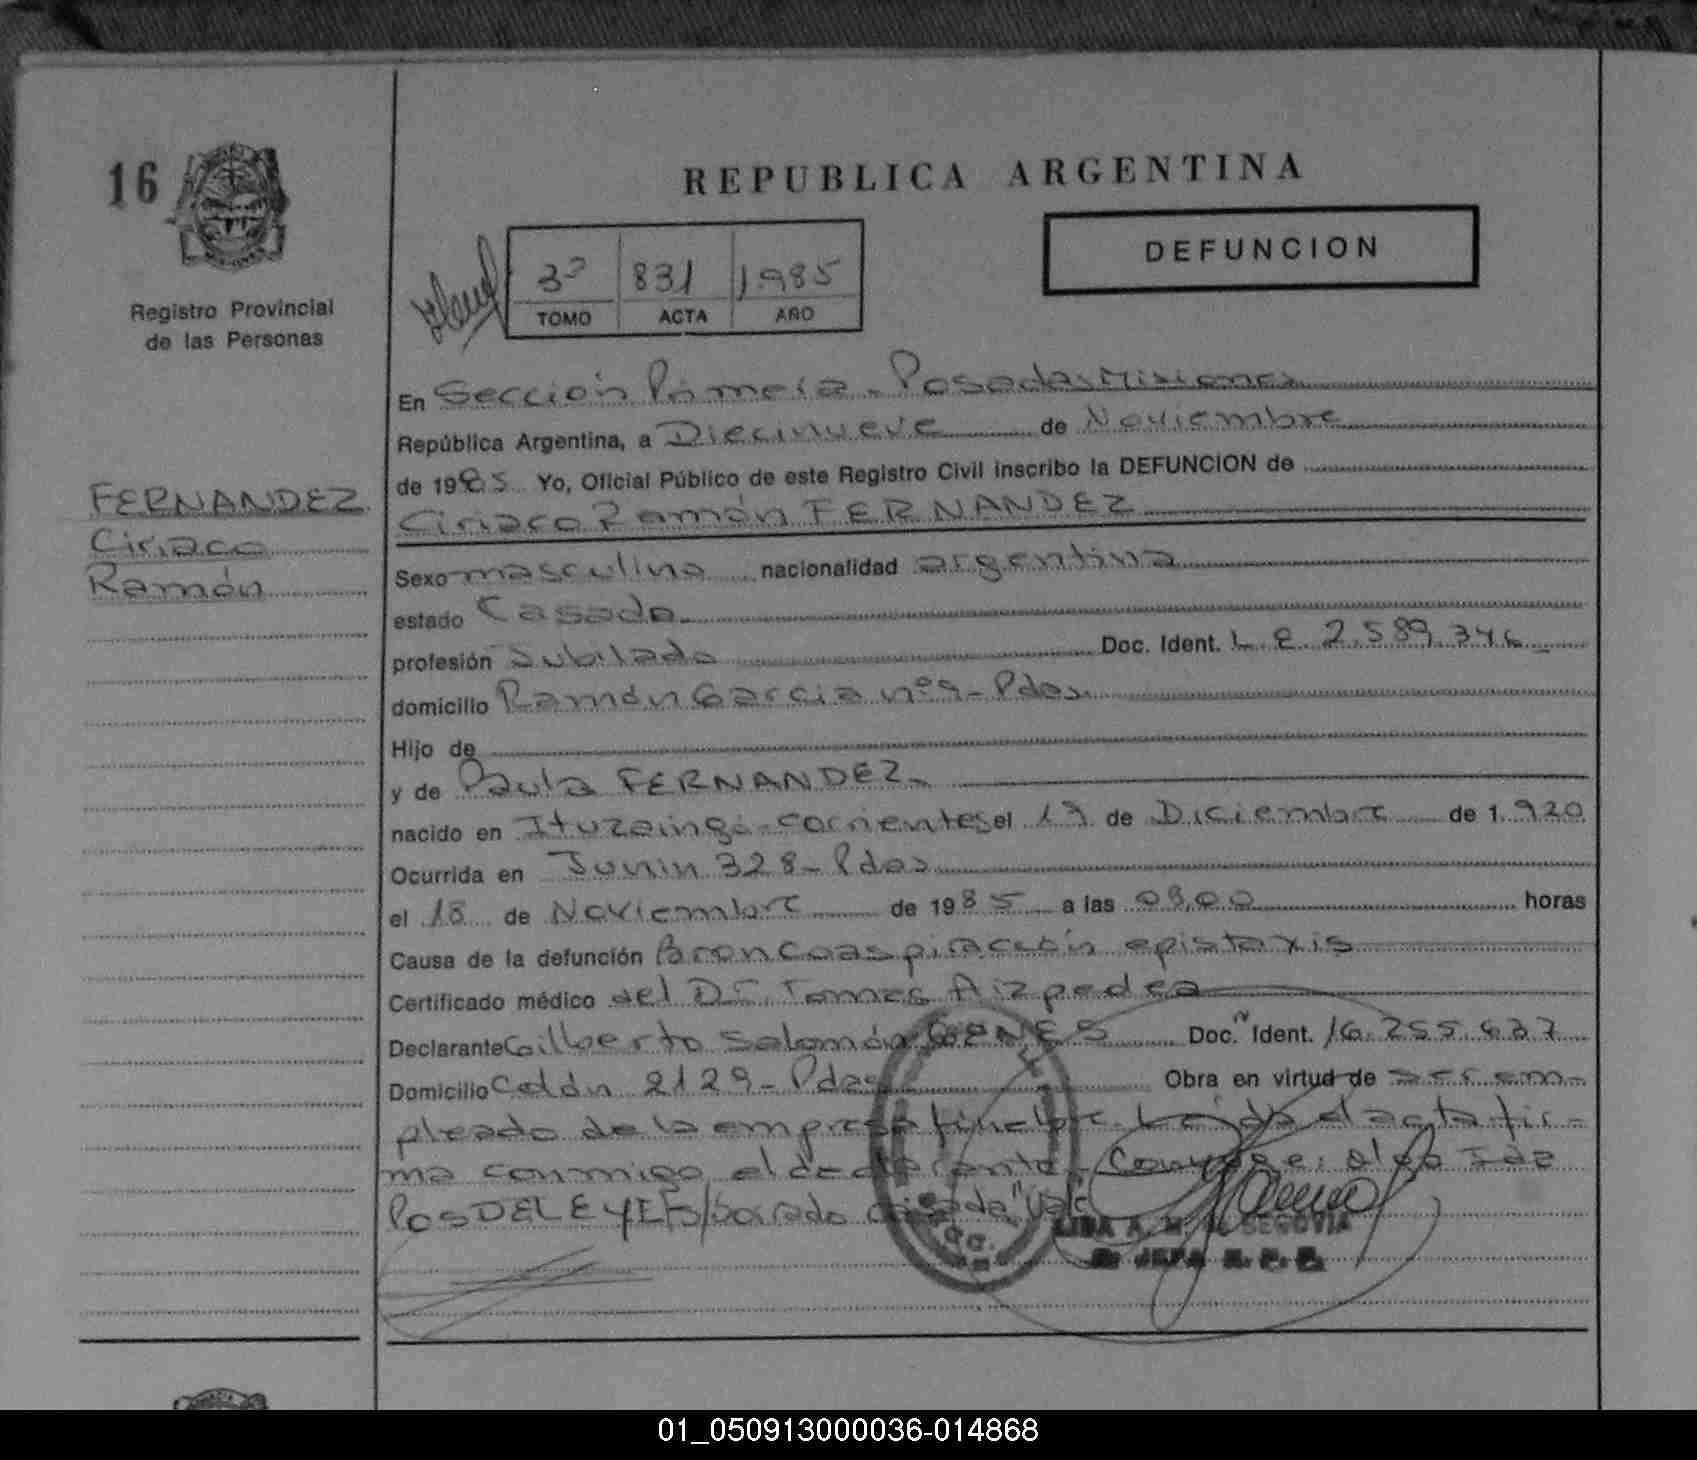 16
REPUBLICA ARGENTINA
DEFUNCION
3º 831 1.985
TOMO ACTA AÑO
Registro Provincial
de las Personas
FERNANDEZ
Ciriaco
Ramón
En Sección Primera - Posadas Misiones
República Argentina, a Diecinueve de Noviembre
de 1985 Yo, Oficial Público de este Registro Civil inscribo la DEFUNCION de
Ciriaco Ramón FERNANDEZ
Sexo masculino nacionalidad argentina
estado Casado
profesión Jubilado Doc. Ident. L.E 2.589.346
domicilio Ramón Garcia nº 9 - Pdas
Hijo de
y de Paula FERNANDEZ
nacido en Ituzaingó - Corrientes el 19 de Diciembre de 1.920
Ocurrida en Junin 328 - Pdas
el 18 de Noviembre de 1985 a las 09,00 horas
Causa de la defunción Broncoaspiración epistaxis
Certificado médico del Dr. Tomas Aizpedea
Declarante Gilberto Salomón GENES Doc. Ident. 16.255.637
Domicilio Colón 2129 - Pdas Obra en virtud de ser em-
pleado de la empresa fúnebre. Leída el acta fir-
ma conmigo el declarante - Conyuge: Ida
Pos DELEYES
SEGOVIA
JEFA R. P. P.
01_050913000036-014868